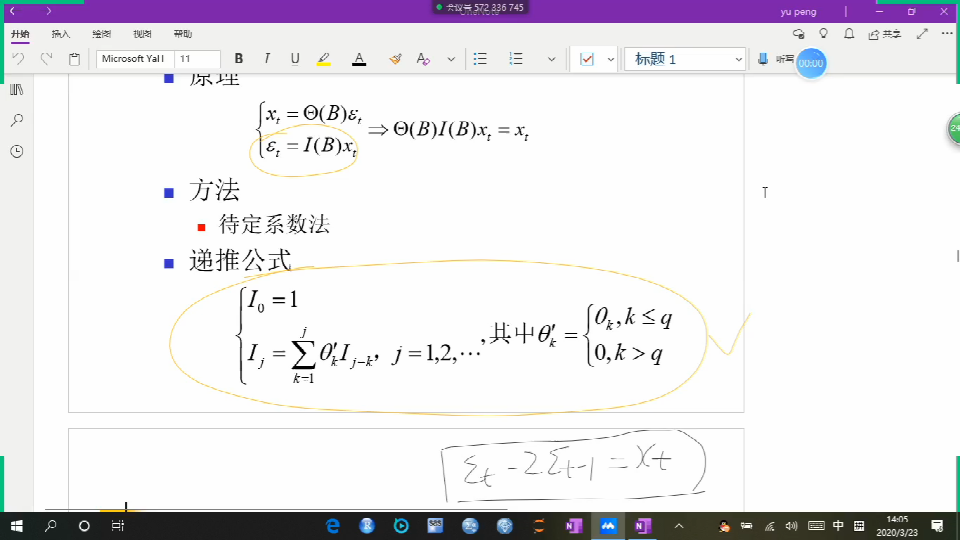 会议号 572 336 745
yu peng
开始 插入 绘图 视图 帮助
共享
Microsoft YaHei 11 B I U A 标题 1 听写 00:00
原理
{x_t = Θ(B)ε_t
ε_t = I(B)x_t ⇒ Θ(B)I(B)x_t = x_t
方法
待定系数法
递推公式
{I_0 = 1
I_j = ∑_{k=1}^{j} θ'_k I_{j-k}, j = 1,2,⋯, 其中 θ'_k = {θ_k, k ≤ q
0, k > q
ε_t - 2ε_{t-1} = x_t
24
中
14:05
2020/3/23